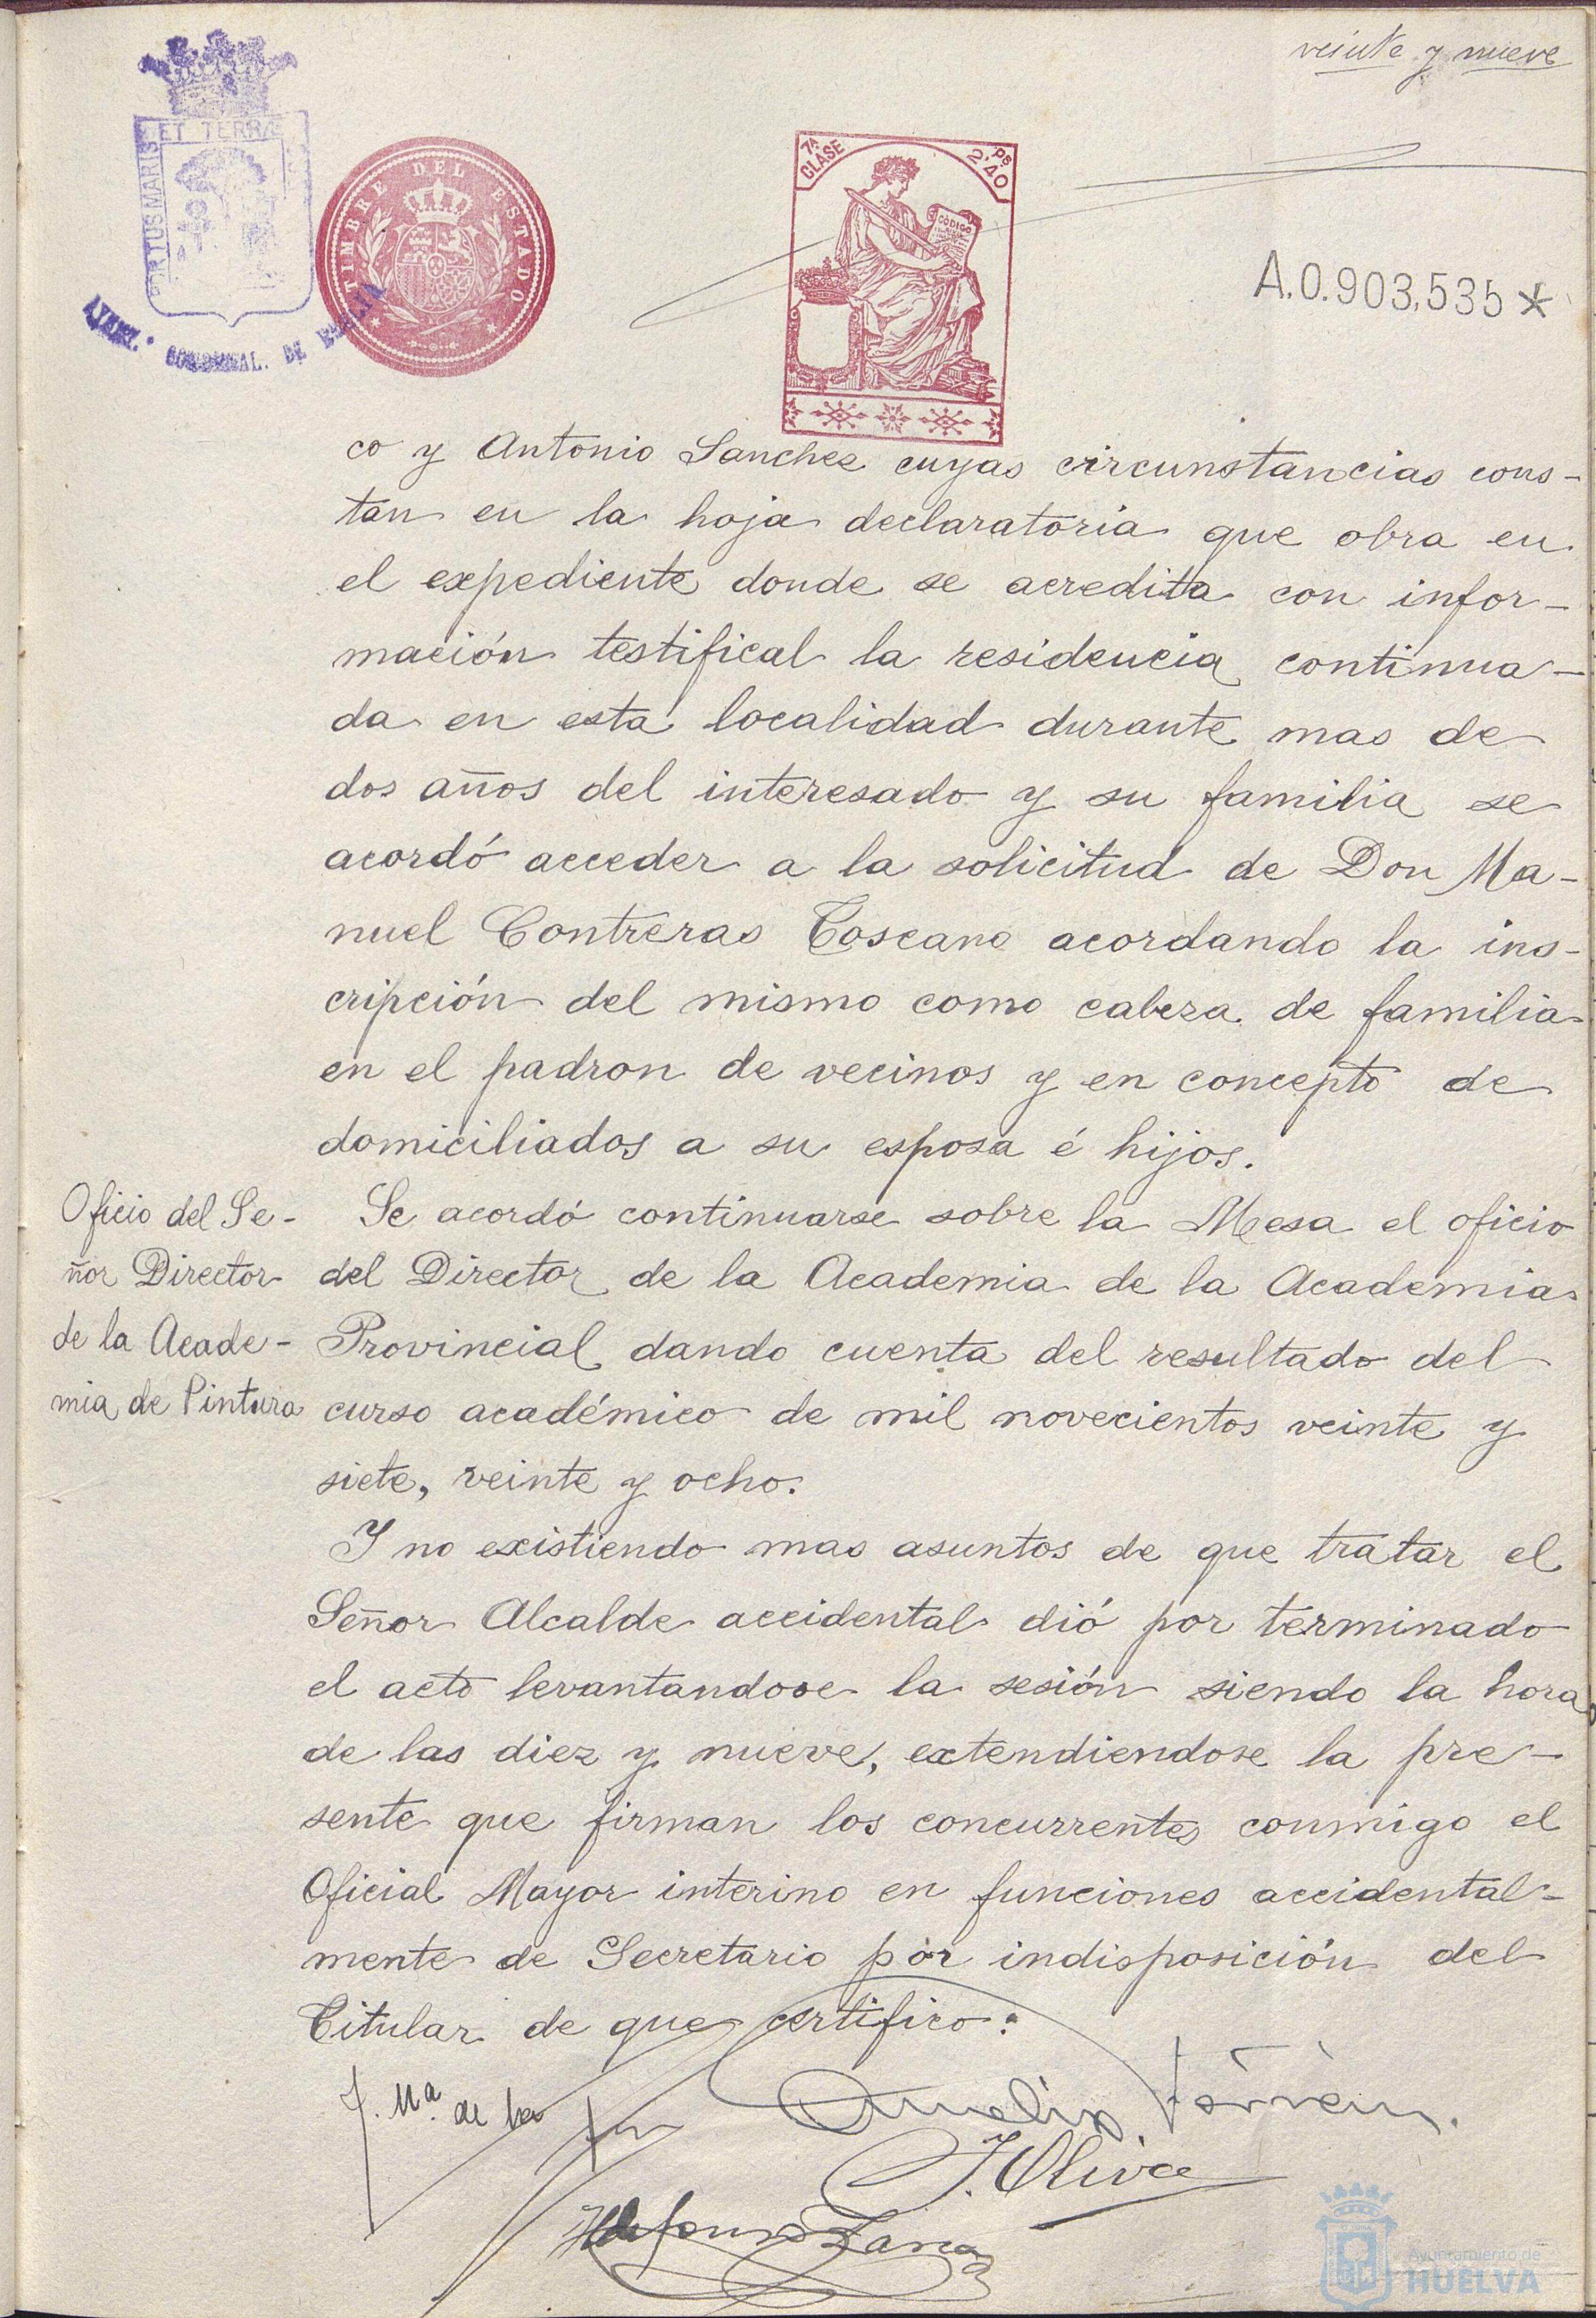 veinte y nueve
PORTUS MARIS ET TERRÆ
TIMBRE DEL ESTADO
7ª CLASE
2'40 Ps
CÓDIGO
A.0.903,535*
AYUNT.
DE
co y Antonio Sanchez cuyas circunstancias cons-
tan en la hoja declaratoria que obra en
el expediente donde se acredita con infor-
mación testifical la residencia continua-
da en esta localidad durante mas de
dos años del interesado y su familia se
acordó acceder a la solicitud de Don Ma-
nuel Contreras Toscano acordando la ins-
cripción del mismo como cabeza de familia
en el padron de vecinos y en concepto de
domiciliados a su esposa é hijos.
Oficio del Se-
ñor Director
de la Acade-
mia de Pintura
Se acordó continuarse sobre la Mesa el oficio
del Director de la Academia de la Academia
Provincial dando cuenta del resultado del
curso académico de mil novecientos veinte y
siete, veinte y ocho.
Y no existiendo mas asuntos de que tratar el
Señor Alcalde accidental dió por terminado
el acto levantandose la sesión siendo la hora
de las diez y nueve, extendiendose la pre-
sente que firman los concurrentes conmigo el
Oficial Mayor interino en funciones accidental-
mente de Secretario por indisposición del
Titular de que certifico:
J. Mª de la
J. Oliva
Ayuntamiento de
HUELVA